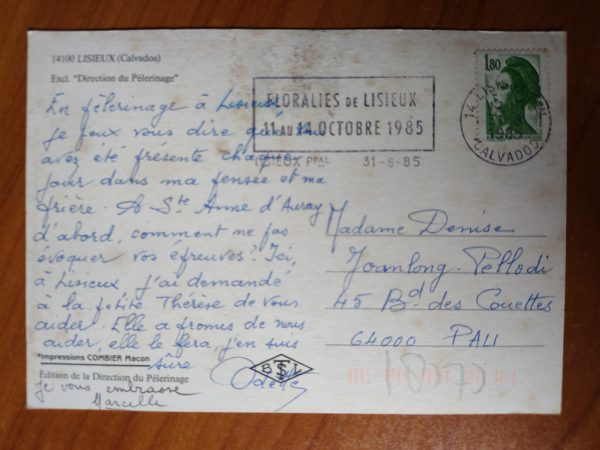 14100 LISIEUX (Calvados)
Excl. "Direction du Pèlerinage"
En pèlerinage à Lisieux
je peux vous dire que
avez été présente chaque
jour dans ma pensée et ma
prière. A Ste Anne d'Auray
d'abord, comment ne pas
évoquer vos épreuves? Ici,
à Lisieux, j'ai demandé
à la petite Thérèse de vous
aider. Elle a promis de nous
aider, elle le fera, j'en suis
sure
Odette
*Impressions COMBIER Macon
Édition de la Direction du Pèlerinage
je vous embrasse
Marcelle
FLORALIES DE LISIEUX
11 AU 14 OCTOBRE 1985
LISIEUX PPAL 31-8-85
1,80
14 LIS
1985
CALVADOS
Madame Denise
Joanlong-Pellodi
45 Bd des Couettes
64000 PAU